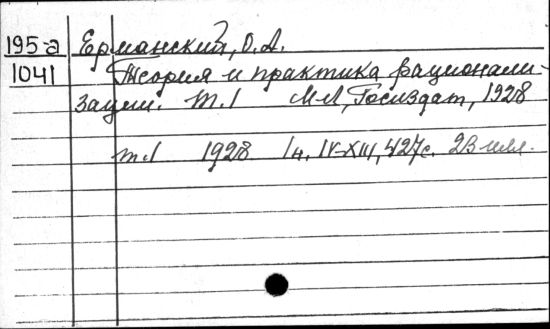 195а Ерманский, О.А.
1041 Теория и практика рационали-
зации. т.1 М-Л, Госиздат, 1928
т.1 1928 1н. IV-XIII, 427с. 23 илл.